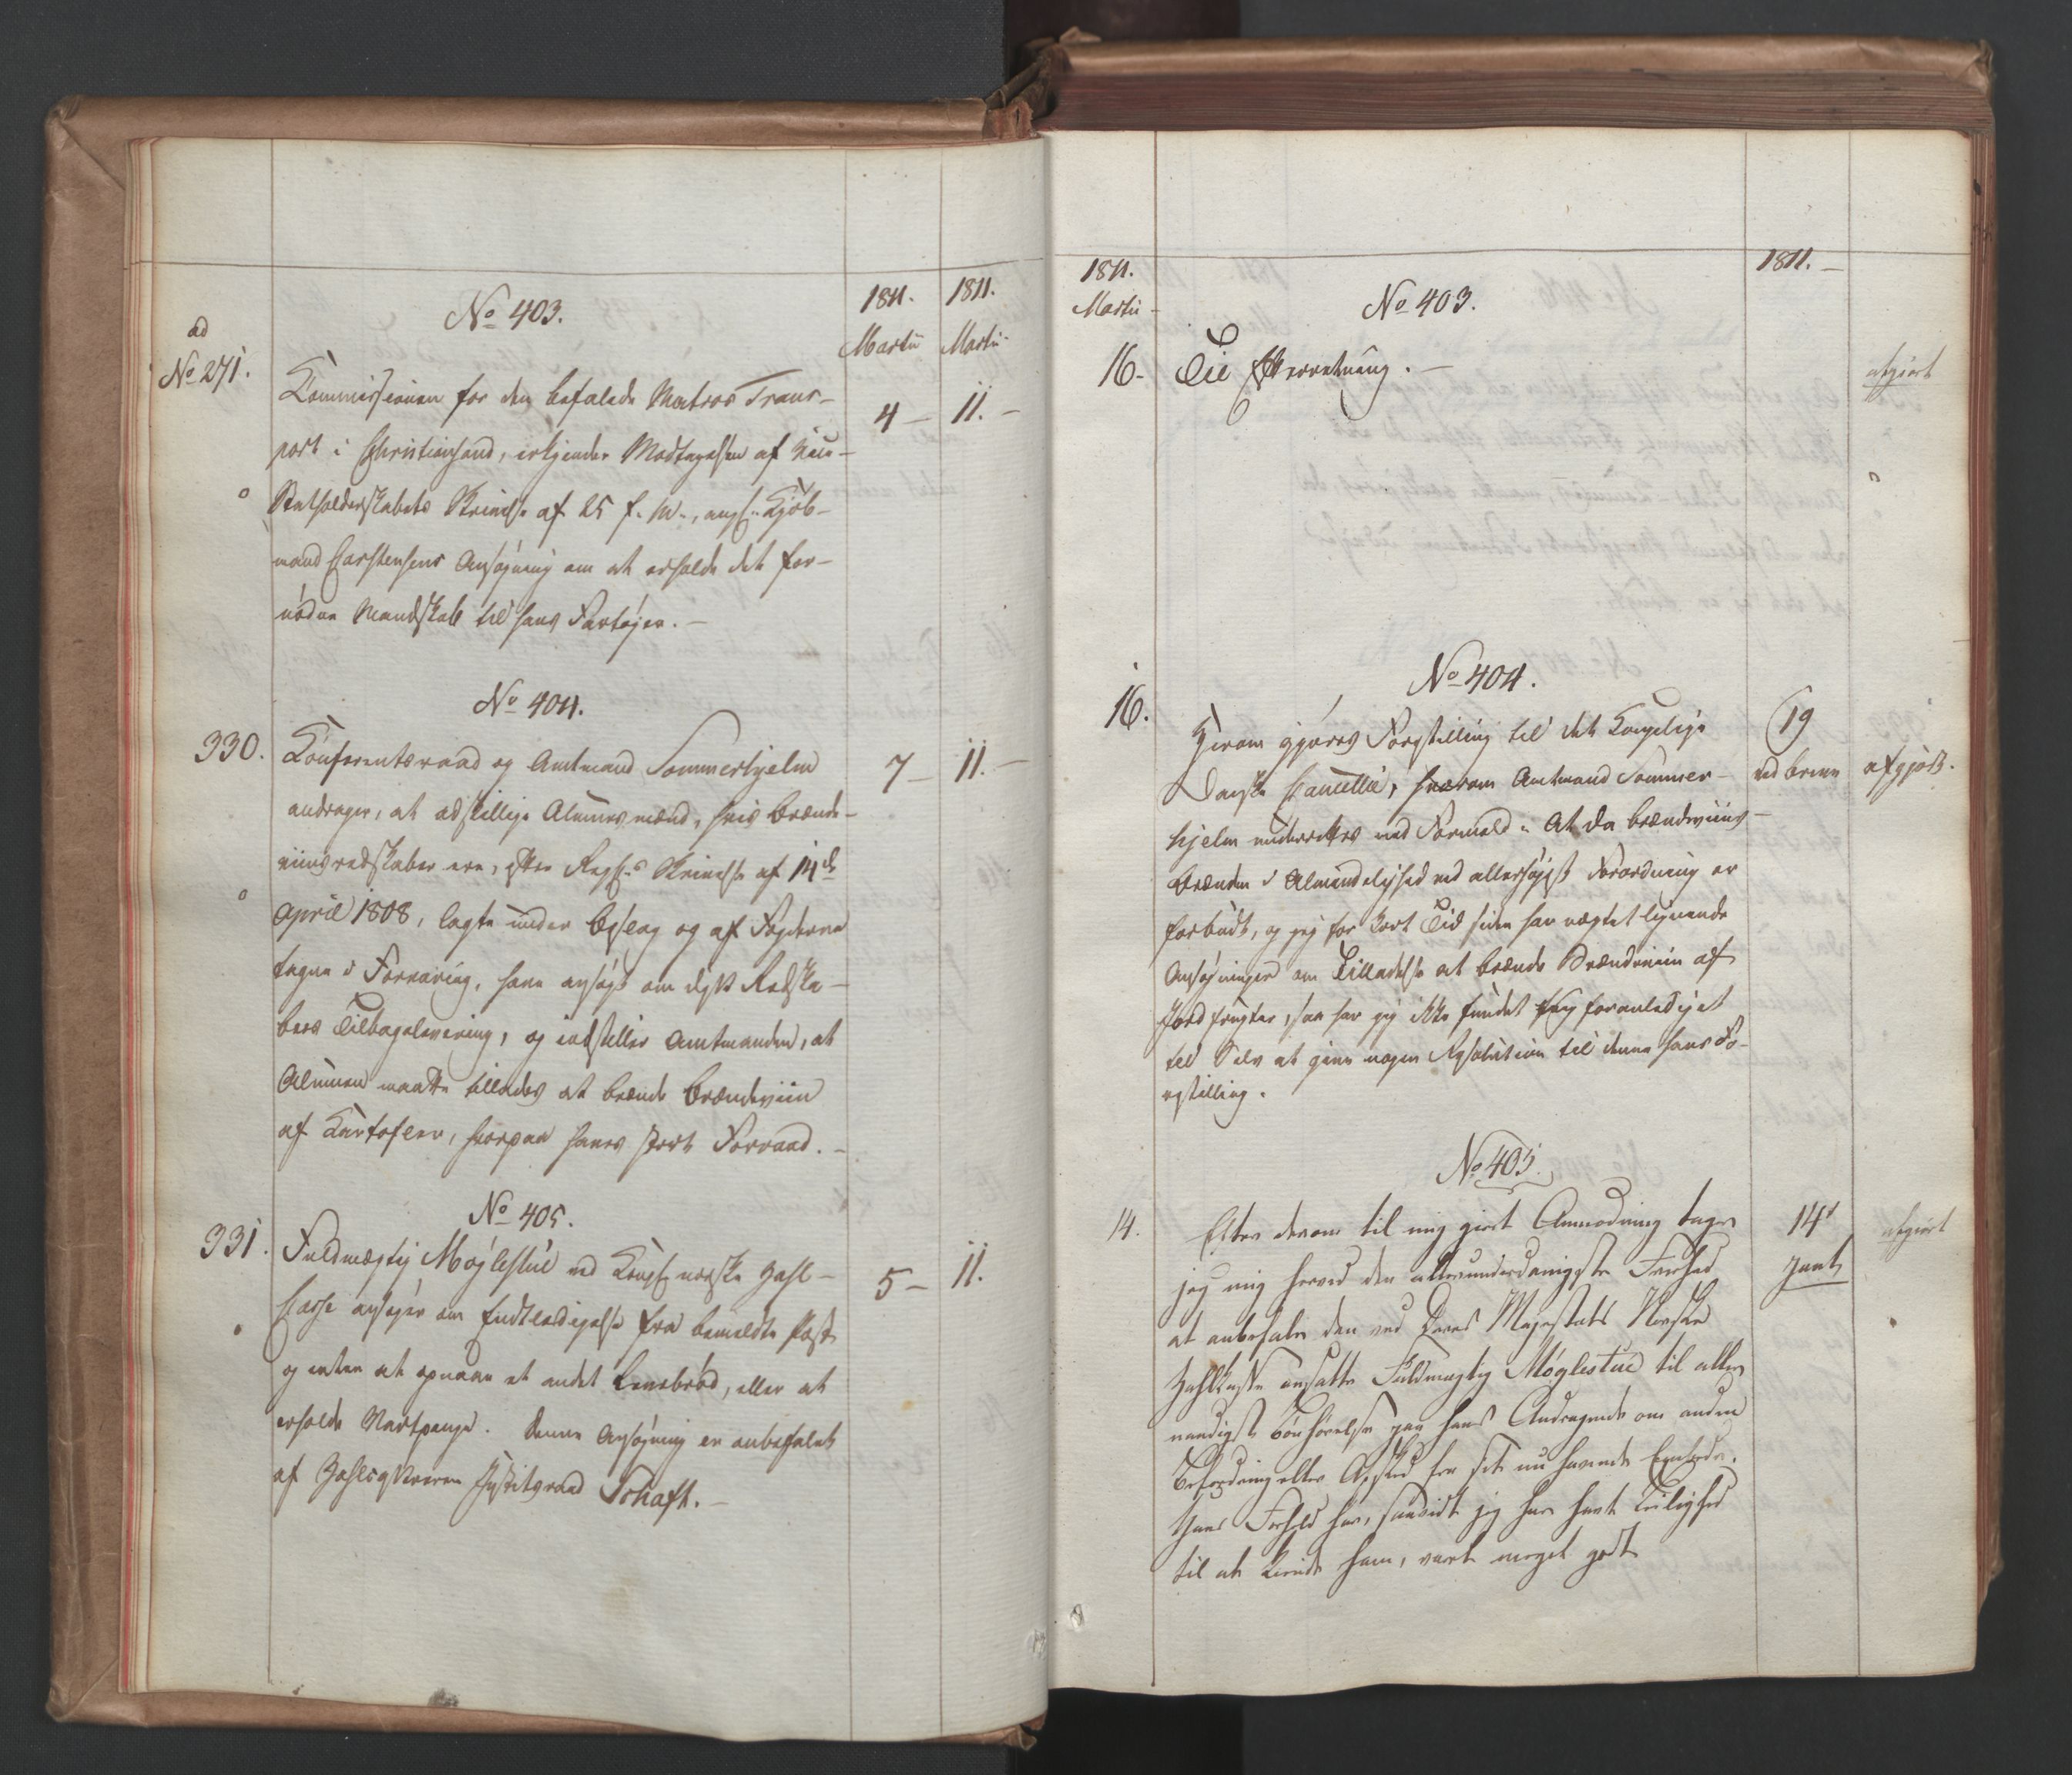 1811. 1811.
Martii Martii
No 403.
ad
No 271.
Commissionen for den befalede Matros Trans-
port i Christiansand, erkjender Modtagelsen af Vice-
Statholderskabets Skrivelse af 25 f. M., angl. Kjøb-
mand Carstensens Ansøgning om at erholde det for-
nødne Mandskab til hans Fartøjer. -
4 - 11. -
No 404.
330. Conferentsraad og Amtmand Sommerhjelm
andrager, at adskillige Almuesmænd, hvis Brænde-
viinsredskaber ere, efter Skrivelse af 14d
April 1808, lagte under Beslag og af Fogderne
tagne i Forvaring, have ansøgt om disse Redska-
bers Tilbagelevering, og indstiller Amtmanden, at
Almuen maatte tillades at brænde Brændeviin
af Kartofler, hvorpaa haves stort Forraad. -
7 - 11. -
No 405.
331. Fuldmægtig Møglestue ved Kongl. norske Zahl-
Casse ansøger om Endtledigelse fra bemeldte Post
og enten at opnaae et andet Levebrød, eller at
erholde Vartpenge. Denne Ansøgning er anbefalet
af Zahlcasserer Justitsraad Schaft. -
5 - 11.
1811.
Martii
1811. -
No 403.
16. Til Efterretning. -
afgiort
No 404.
16. Herom gjøres Forestilling til det Kongelige
Danske Cancellie, hvorom Amtmand Sommer-
hjelm underrettes med Formeld: At da Brændeviins-
Brænden i Almindelighed ved allerhøjest Forordning er
forbudt, og jeg for kort Tid siden har nægtet lignende
Ansøgninger om Tilladelse at brænde Brændeviin af
Jordfrugter, saa har jeg ikke fundet mig foranlediget
til Selv at give nogen Resolution til denne hans Fo-
restilling.
19
ved Breve
afgjort.
No 405.
14. Efter derom til mig giort Anmodning tager
jeg mig herved den allerunderdanigste Frihed
at anbefale den ved Deres Majestæts Norske
Zahlkasse ansatte Fuldmægtig Møglestue til aller-
naadigst Bønhørelse paa hans Andragende om anden
Befordring eller Afsked fra sit nu havende Embede.
Hans Forhold har, saavidt jeg har havt Leilighed
til at kiende ham, været meget godt
14
afgiort